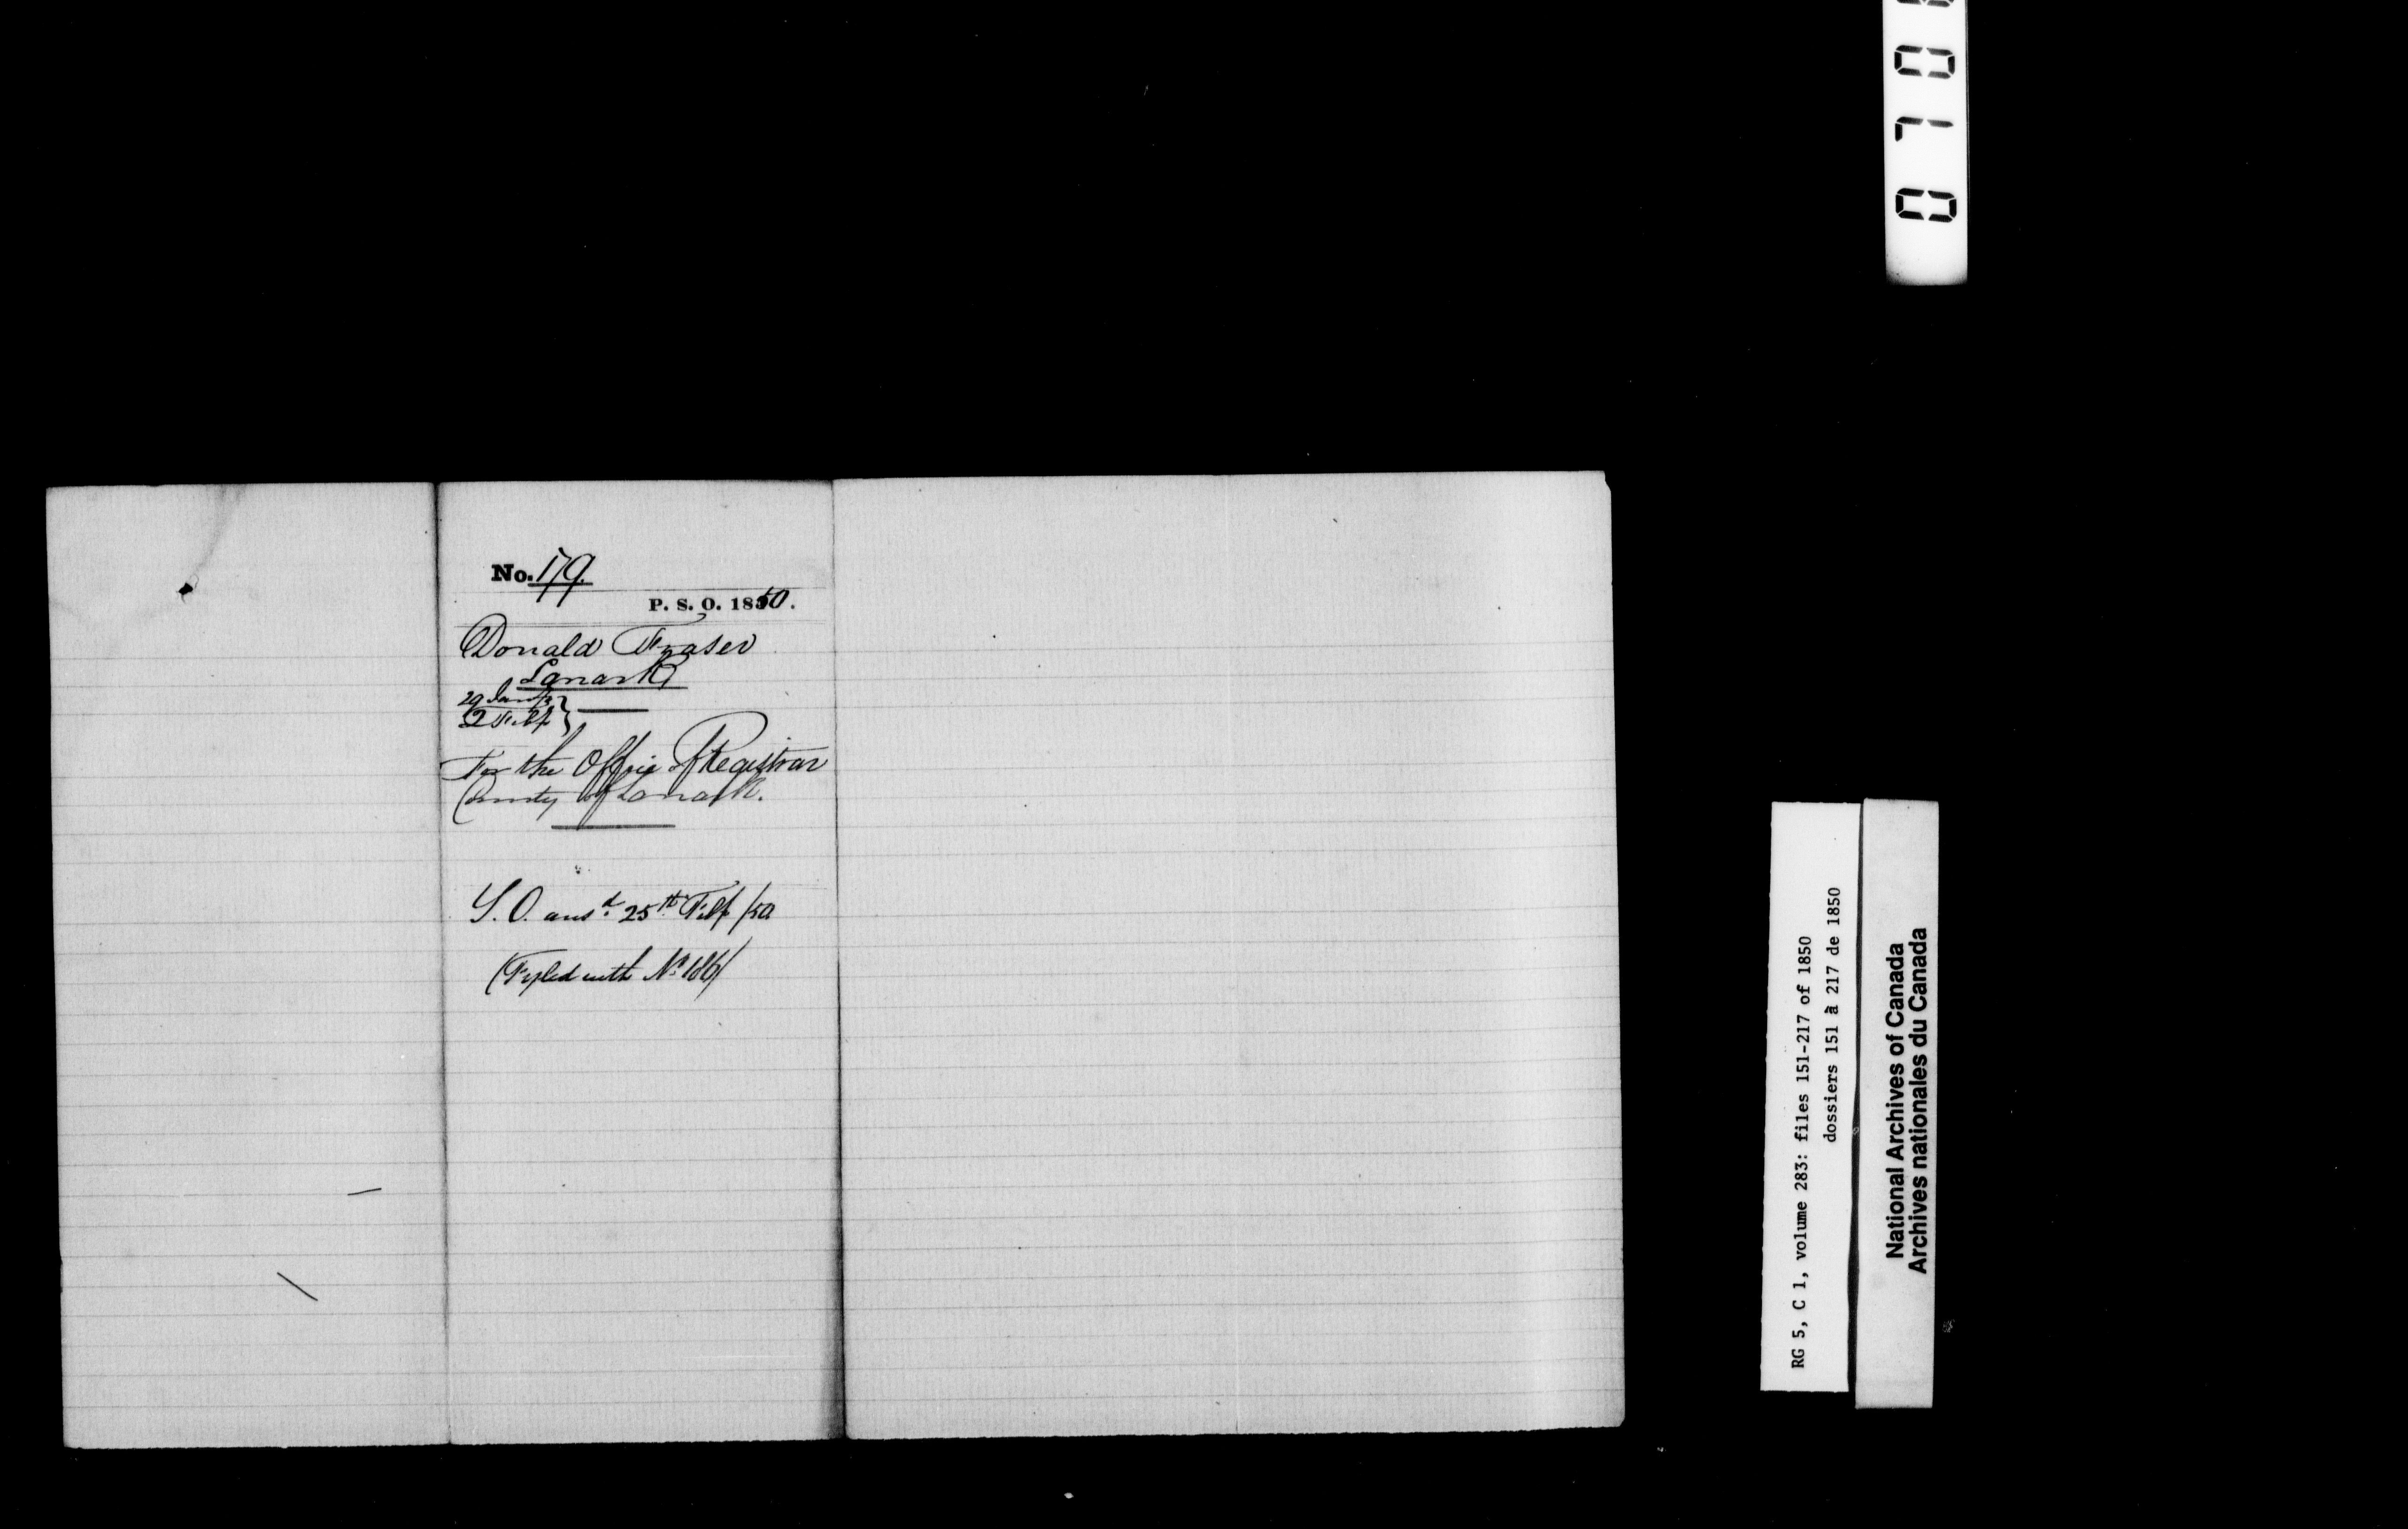 No. 179.
P. S. O. 1850.
Donald Fraser
Lanark
29 Jany
2 Feby
For the Office of Registrar
County of Lanark.
S. O. ansd 25th Feby /50
(Fyled with No 186)
RG 5, C 1, volume 283: files 151-217 of 1850
dossiers 151 à 217 de 1850
National Archives of Canada
Archives nationales du Canada